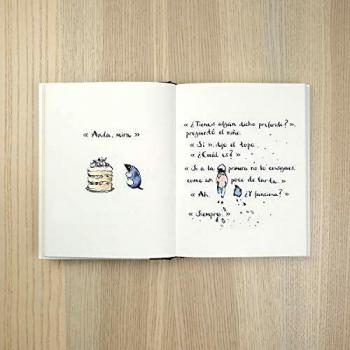 « Anda, mira »
« ¿Tienes algún dicho preferido? »,
preguntó el niño.
« Sí », dijo el topo.
« ¿Cuál es? »
« Si a la primera no lo consigues,
come un poco de tarta. »
« Ah. ¿Y funciona? »
« Siempre. »